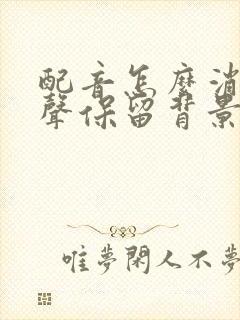 配音怎麼消
聲保留背景
唯夢閑人不夢